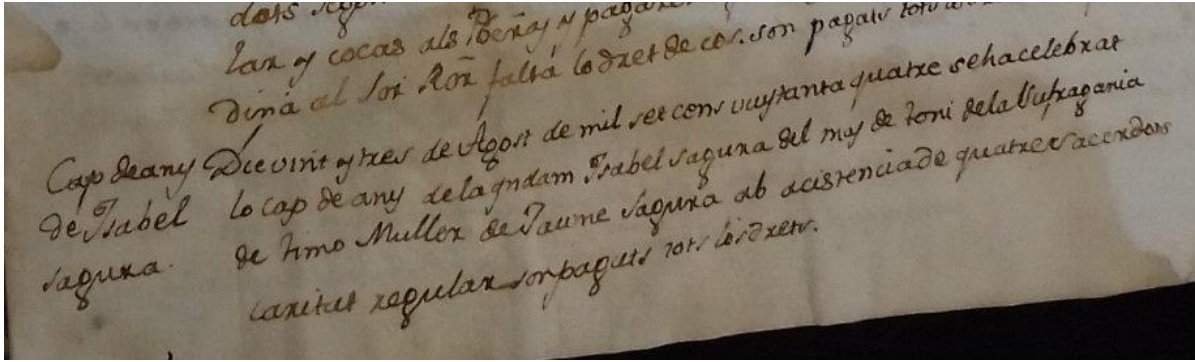 dots
lar y cocas als Pobres y pagaren
diná al Sor Ror falta lo dret de cos. son pagats tots
Cap de any Die vint y tres de Agost de mil setcens vuytanta quatre se ha celebrat
de Isabel lo cap de any de la qndam Isabel sagura del mas de toni de la Sufragania
sagura. de timo Muller de Jaume sagura ab acistencia de quatre sacerdots
caritat regular son pagats tots los drets.